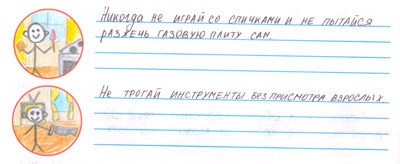 Никогда не играй со спичками и не пытайся
разжечь газовую плиту сам.
Не трогай инструменты без присмотра взрослых.